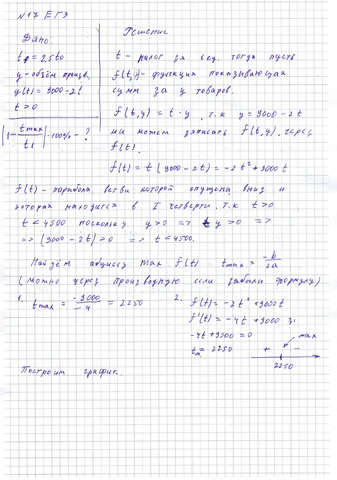 №17 ЕГЭ
Дано
t₁ = 2,5t₀
y - объём произв.
y(t) = 9000 - 2t
t > 0
|1 - tmax/t₁| · 100% - ?
Решение
t - налог за ед. тогда пусть
f(t,y) - функция показывающая
сумм за y товаров.
f(t,y) = t · y, т.к y = 9000 - 2t
мы можем записать f(t,y) через
f(t).
f(t) = t(9000 - 2t) = -2t² + 9000t
f(t) - парабола ветви которой опущены вниз и
которая находится в I четверти, т.к t > 0
t < 4500 поскольку y > 0 => ty > 0 =>
=> (9000 - 2t) > 0 => t < 4500.
Найдём абциссу max f(t) tmax = -b/2a
(можно через производную если забыли формулу)
1. tmax = -9000/-4 = 2250
2. f(t) = -2t² + 9000t
f'(t) = -4t + 9000
-4t + 9000 = 0
t = 2250
+ max -
2250
Построим график